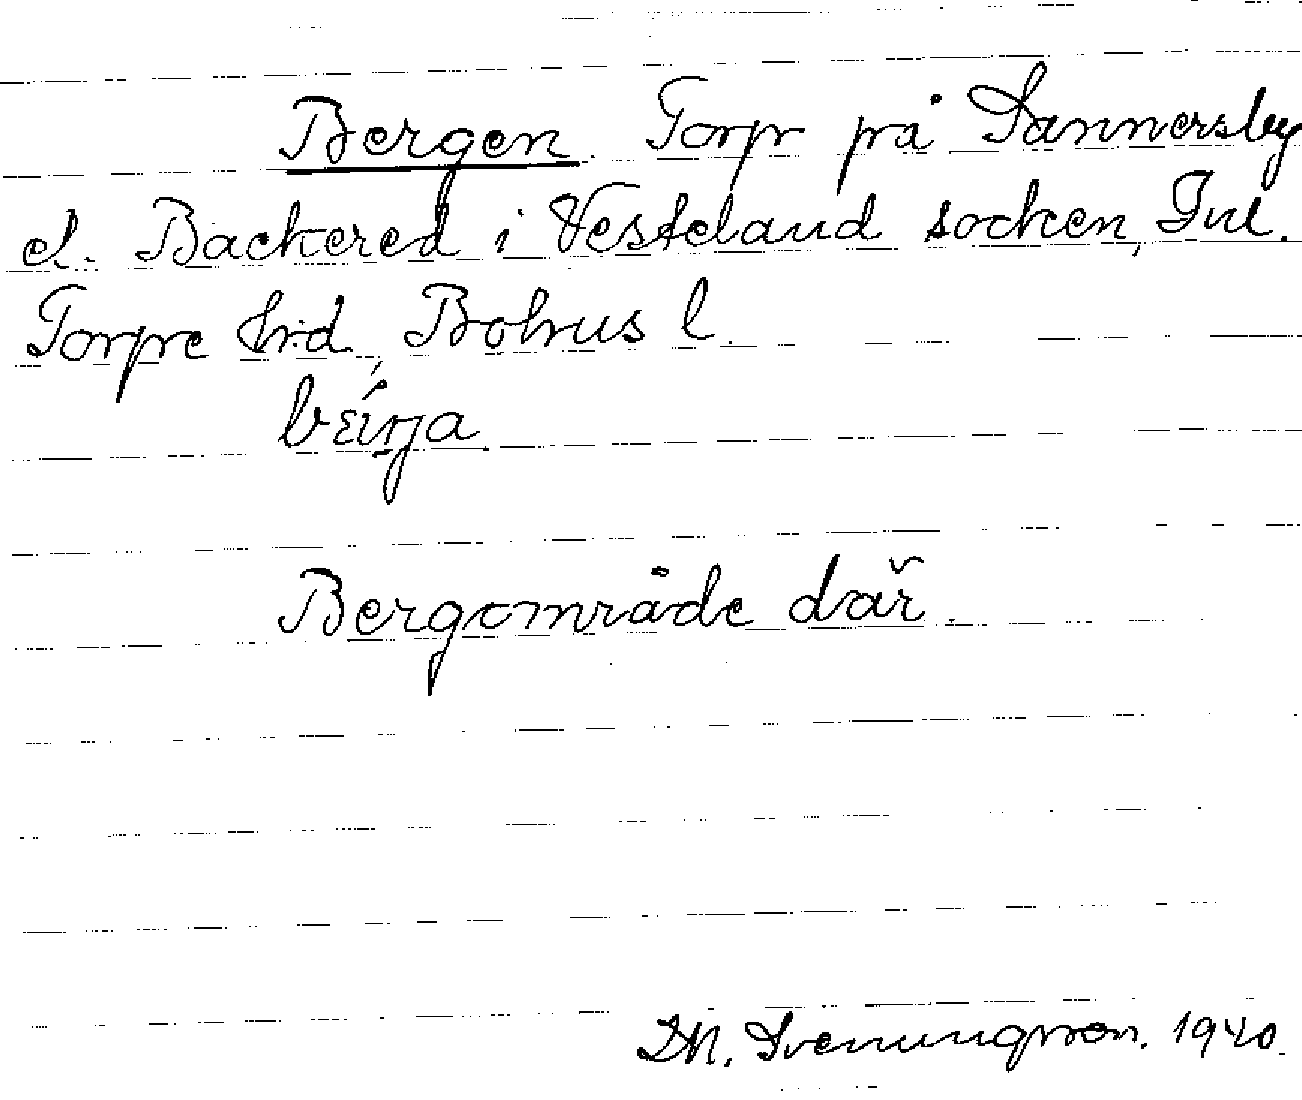 Bergen. Torp på Sannersby
el. Backered i Vesteland socken, Inl.
Torpe hrd, Bohus l.
Bergområde där.
D.M. Svenungsson. 1940.